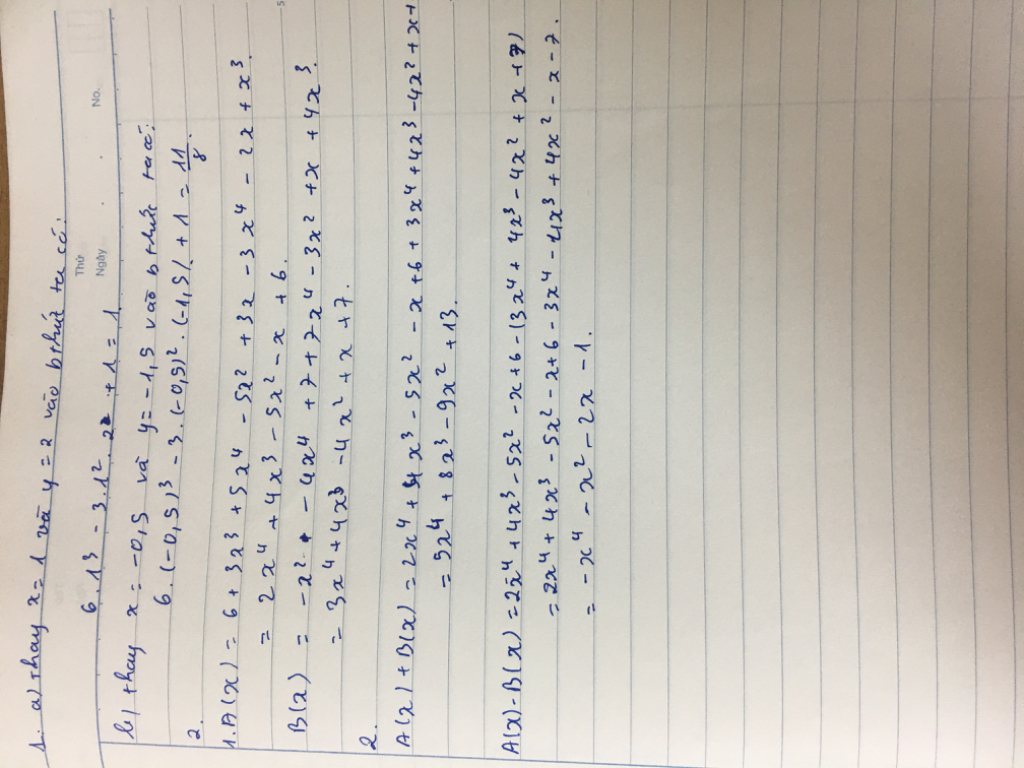 No.
Thứ
Ngày
1. a) thay x = 1 và y = 2 vào bthức ta có:
6 . 1³ - 3 . 1² . 2 + 1 = 1
b) thay x = -0,5 và y = -1,5 vào bthức ta có:
6 . (-0,5)³ - 3 . (-0,5)² . (-1,5) + 1 = 11/8.
2.
1. A(x) = 6 + 3x³ + 5x⁴ - 5x² + 3x - 3x⁴ - 2x + x³.
= 2x⁴ + 4x³ - 5x² - x + 6.
B(x) = -x² - 4x⁴ + 7 + 7x⁴ - 3x² + x + 4x³.
= 3x⁴ + 4x³ - 4x² + x + 7.
2.
A(x) + B(x) = 2x⁴ + 4x³ - 5x² - x + 6 + 3x⁴ + 4x³ - 4x² + x +
= 5x⁴ + 8x³ - 9x² + 13.
A(x) - B(x) = 2x⁴ + 4x³ - 5x² - x + 6 - (3x⁴ + 4x³ - 4x² + x + 7)
= 2x⁴ + 4x³ - 5x² - x + 6 - 3x⁴ - 4x³ + 4x² - x - 7.
= -x⁴ - x² - 2x - 1.